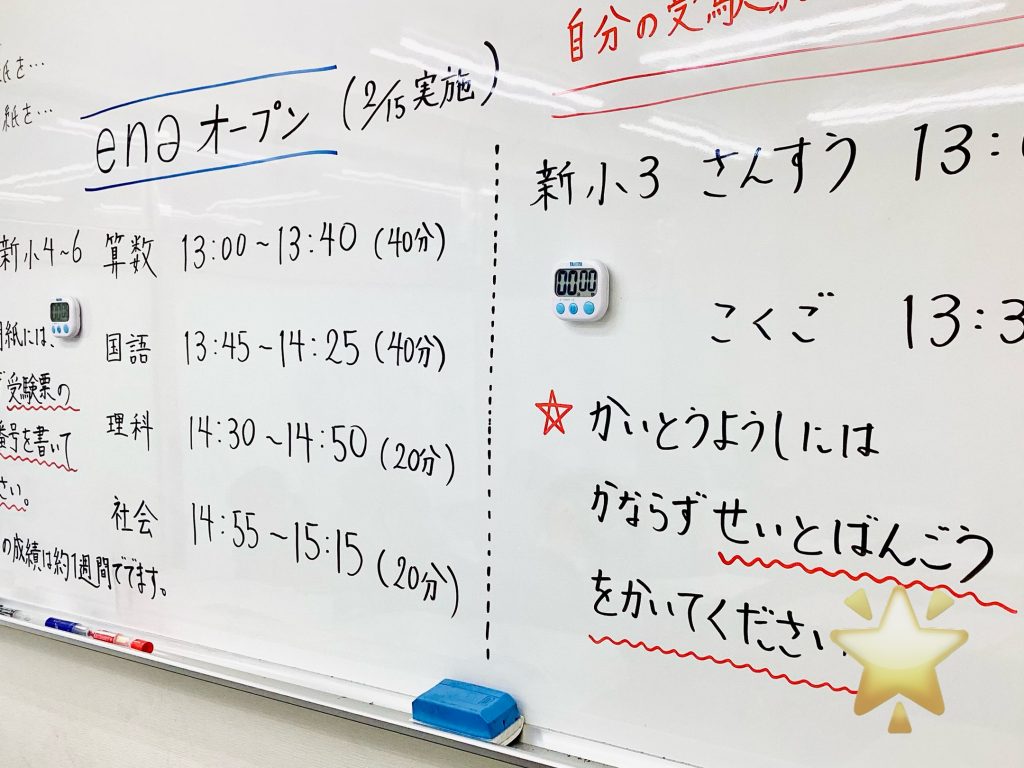 紙を…
紙を…
ena オープン (2/15実施)
新小4~6 算数 13:00~13:40 (40分)
国語 13:45~14:25 (40分)
理科 14:30~14:50 (20分)
社会 14:55~15:15 (20分)
用紙には、
受験票の
番号を書いて
さい。
の成績は約1週間ででます。
自分の受験票
新小3 さんすう 13:
TANITA
00:00
こくご 13:3
☆ かいとうようしには
かならずせいとばんごう
をかいてください